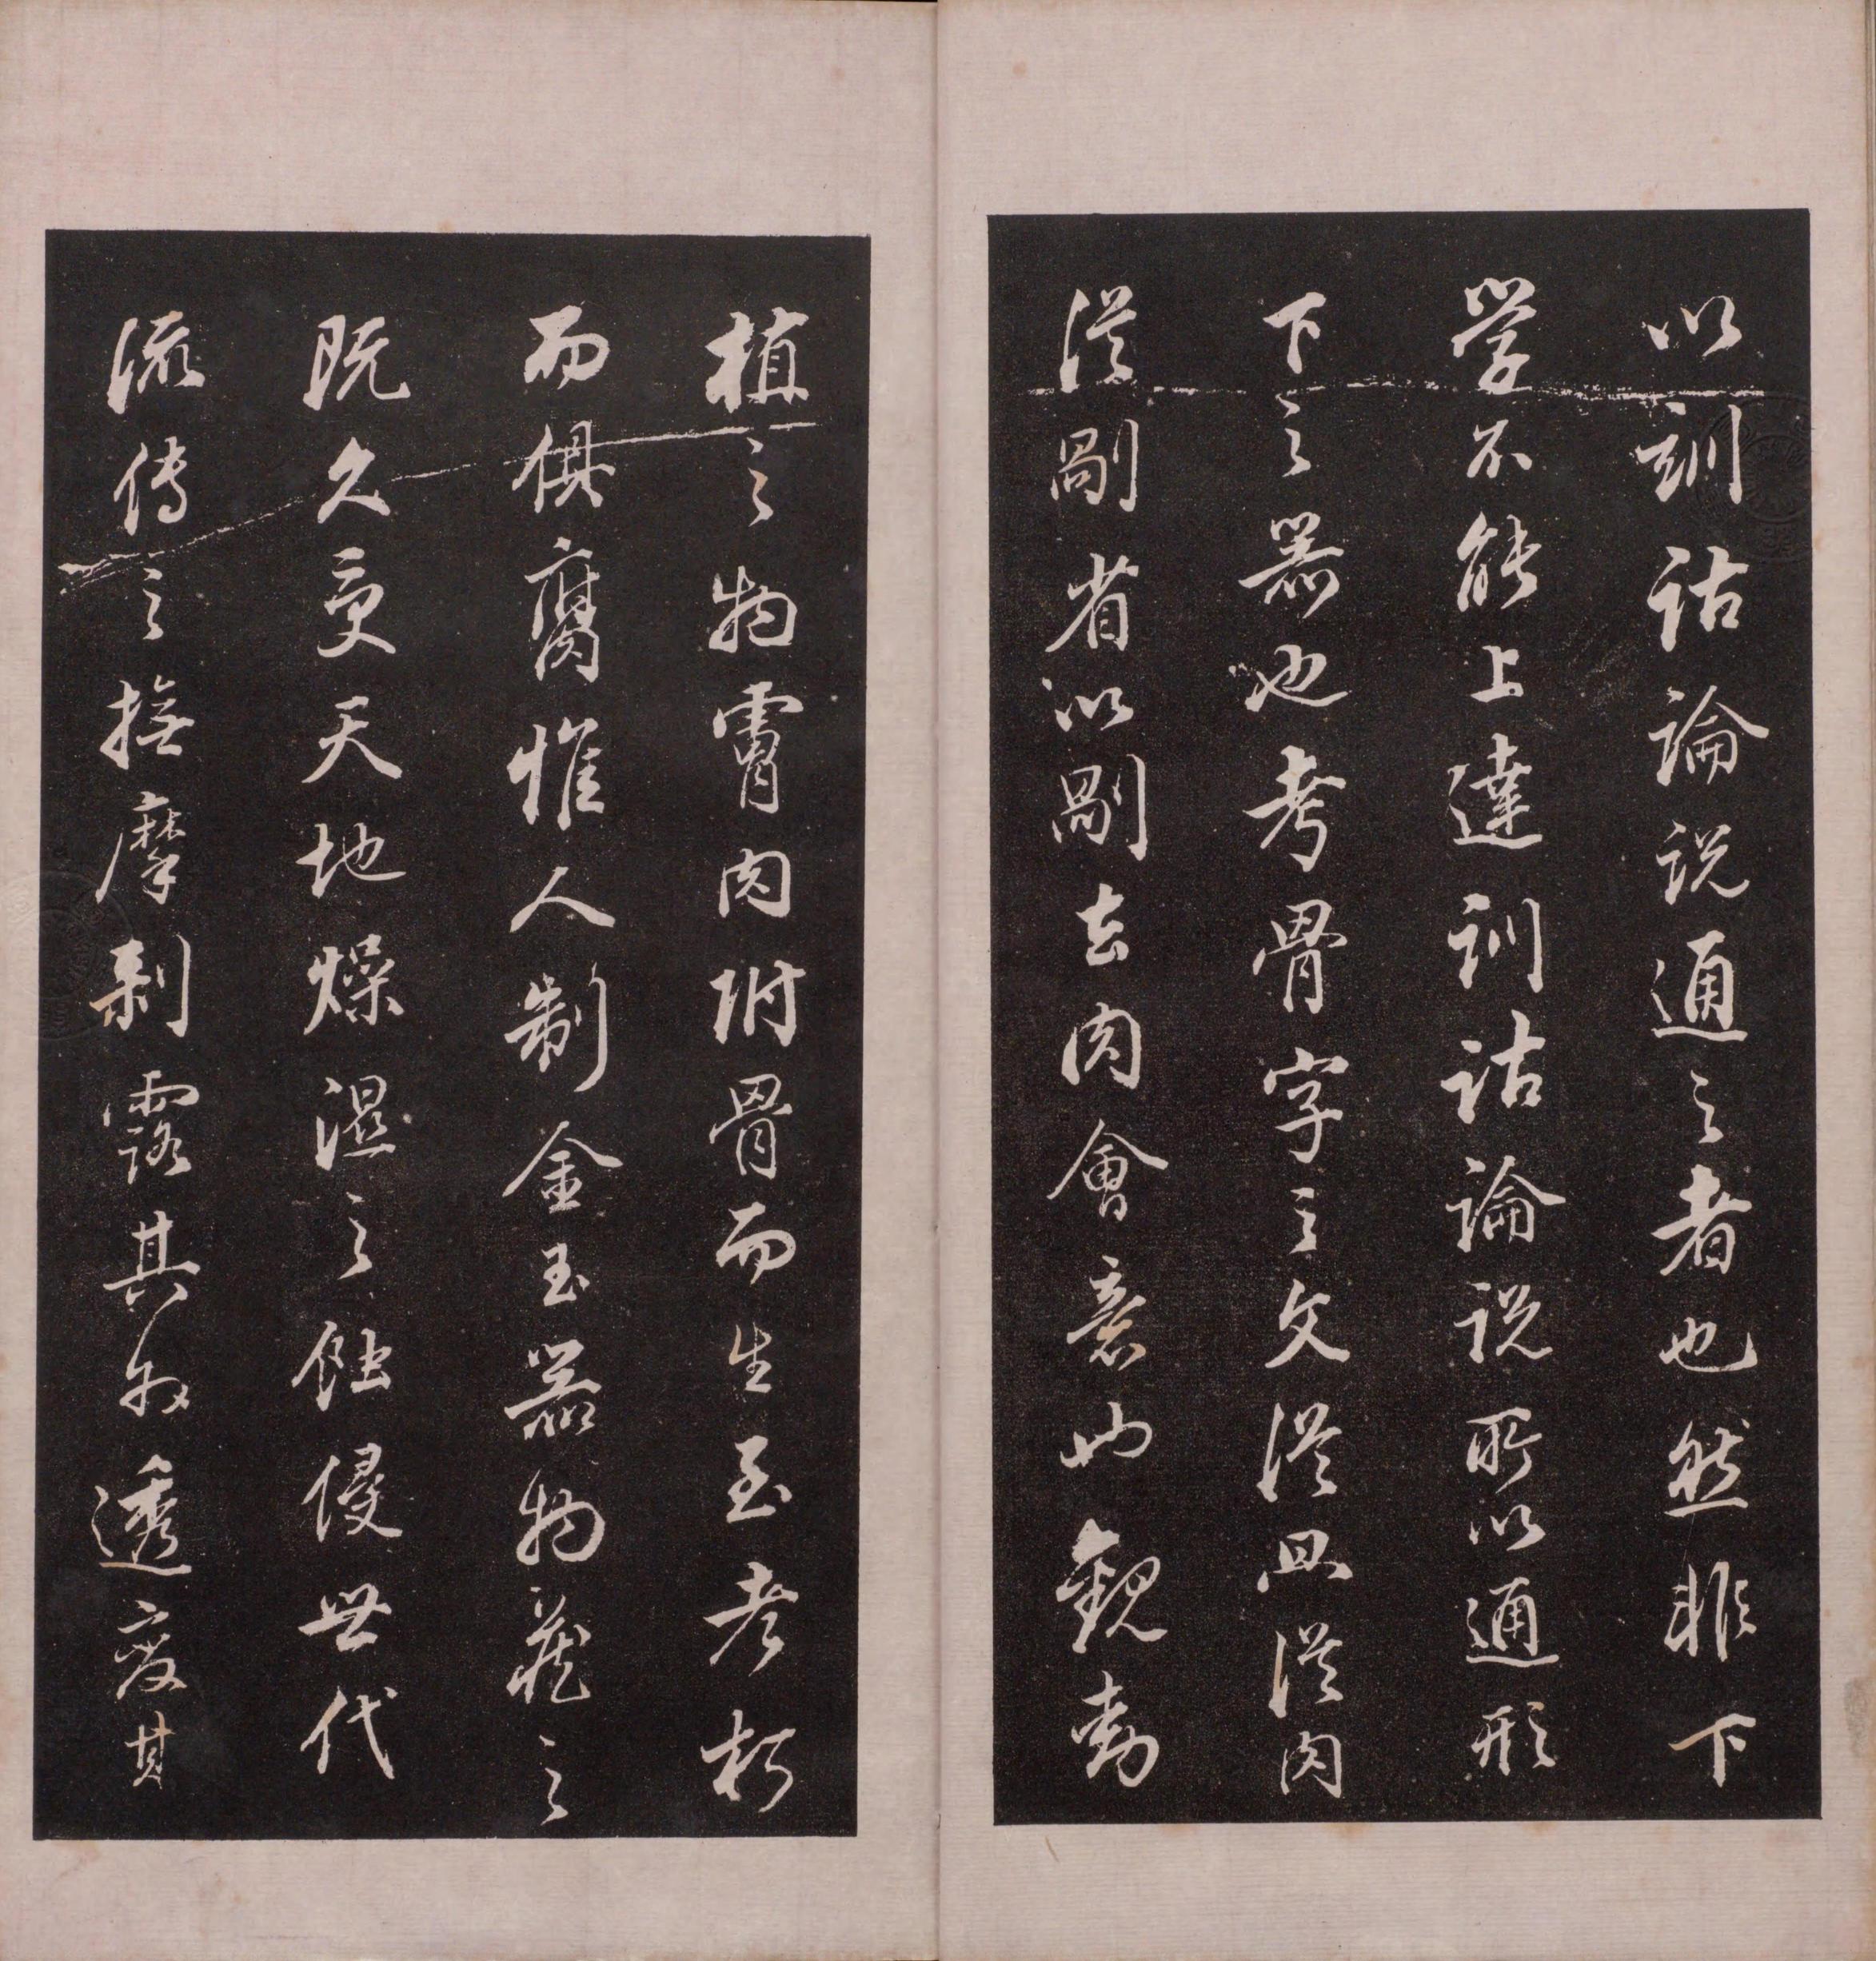 以訓詁論說通之者也然非下
學不能上達訓詁論說所以通形
下之器也考骨字之文從冎從肉
從剮省以剮去肉會意也觀動
植之物膚肉附骨而生至考朽
而俱腐惟人制金玉器物藏之
既久受天地燥濕之蝕侵世代
流傳之撫摩剥露其外透發其